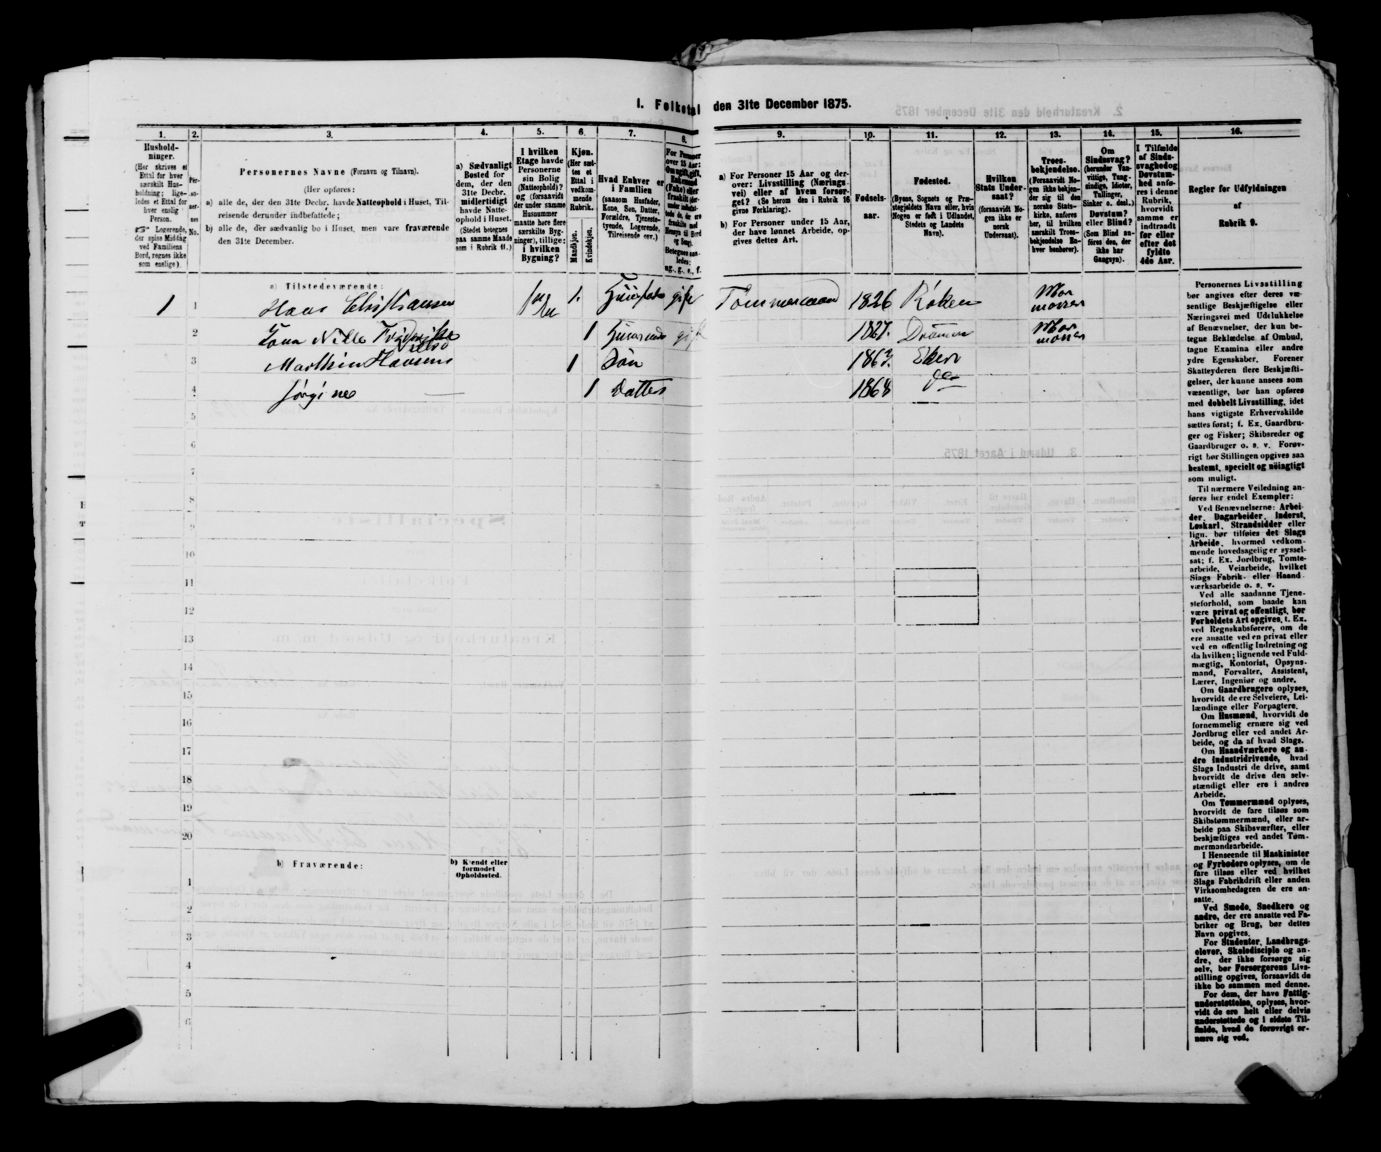 1. Folketal den 31te December 1875.
1. 2. 3. 4. 5. 6. 7. 8. 9. 10. 11. 12. 13. 14. 15. 16.
Hushold-
ninger.
(Her skrives et
Ettal for hver
særskilt Hus-
holdning; lige-
ledes et Ettal for
hver enslig
Person.
Logerende,
der spise Middag
ved Familiens
Bord, regnes ikke
som enslige)
Personernes Navne (Fornavn og Tilnavn).
(Her opføres:
a) alle de, der den 31te Decbr. havde Natteophold i Huset, Til-
reisende derunder indbefattede;
b) alle de, der sædvanlig bo i Huset, men vare fraværende
den 31te December.
a) Sædvanligt
Bosted for
dem, der den
31te Decbr.
midlertidigt
havde Natte-
ophold i Huset.
(Stedet betegnes
paa samme Maade
som i Rubrik 11.)
I hvilken
Etage havde
Personerne
sin Bolig
(Natteophold)?
og (forsaavidt
der under samme
Husnummer
maatte høre flere
særskilte Byg-
ninger), tillige:
i hvilken
Bygning?
Kjøn.
(Her sæt-
tes et
Ettal i
vedkom-
mende
Rubrik.
Mandkjøn.
Kvindekjøn.
Hvad Enhver er
i Familien
(saasom Husfader,
Kone, Søn, Datter,
Forældre, Tjeneste-
tyende, Logerende,
Tilreisende osv.)
For Personer
over 15 Aar:
Om ugift, gift,
Enkemand
(Enke) eller
fraskilt
a) For Personer 15 Aar og der-
over: Livsstilling (Nærings-
vei) eller af hvem forsør-
get? (Se herom den i Rubrik 16
givne Forklaring).
b) For Personer under 15 Aar,
der have lønnet Arbeide, op-
gives dettes Art.
Fødsels-
aar.
Fødested.
(Byens, Sognets og Præ-
stegjeldets Navn eller, hvis
Nogen er født i Udlandet,
Stedets og Landets
Navn).
Hvilken
Stats Under-
saat?
(forsaavidt No-
gen ikke er
norsk
Undersaat).
Troes-
bekjendelse.
(Forsaavidt No-
gen ikke bekjen-
der sig til den
norske Stats-
kirke, anføres
her, til hvilken
særskilt Troes-
bekjendelse En-
hver henhører).
Om
Sindssvag?
(herunder Van-
vittige, Tung-
sindige, Idioter,
Tullinger,
Sinker o. desl.)
Døvstum?
eller Blind?
(Som Blind an-
føres den, der
ikke har
Gangsyn).
I Tilfælde
af Sinds-
svaghed og
Døvstum-
hed anfø-
res i denne
Rubrik,
hvorvidt
samme er
indtraadt
før eller
efter det
fyldte
4de Aar.
Regler for Udfyldningen
af
Rubrik 9.
a) Tilstedeværende:
1 1 Hans Christiansen 1. Husfader gift Tømmermand 1826 Røken Mormoner
2 1 gift 1827. Drammen Mormoner
3 Hansens 1 Søn 1863 Eker
4 Jørgine — 1 Datter 1868 do
5
6
7
8
9
10
11
12
13
14
15
16
17
18
19
20
b) Fraværende:
b) Kjendt eller
formodet
Opholdssted.
1
2
3
4
5
6
Personernes Livsstilling
bør angives efter deres væ-
sentlige Beskjæftigelse eller
Næringsvei med Udelukkelse
af Benævnelser, der kun be-
tegne Beklædelse af Ombud,
tagne Examina eller andre
ydre Egenskaber. Forener
Skatteyderen flere Beskjæfti-
gelser, der kunne ansees som
væsentlige, bør han opføres
med dobbelt Livsstilling, idet
hans vigtigste Erhvervskilde
sættes først; f. Ex. Gaardbru-
ger og Fisker; Skibsreder og
Gaardbruger o. s. v. Forøv-
rigt bør Stillingen opgives saa
bestemt, specielt og nøiagtigt
som muligt.
Til nærmere Veiledning an-
føres her endel Exempler:
Ved Benævnelserne: Arbei-
der, Dagarbeider, Inderst,
Løskarl, Strandsidder eller
lign. bør tilføies det Slags
Arbeide, hvormed vedkom-
mende hovedsagelig er syssel-
sat; f. Ex. Jordbrug, Tomte-
arbeide, Veiarbeide, hvilket
Slags Fabrik- eller Haand-
værksarbeide o. s. v.
Ved alle saadanne Tjene-
steforhold, som baade kan
være privat og offentligt, bør
Forholdets Art opgives, f. Ex.
ved Regnskabsførere, om de
ere ansatte ved en privat eller
ved en offentlig Indretning og
da hvilken; lignende ved Fuld-
mægtig, Kontorist, Opsyns-
mand, Forvalter, Assistent,
Lærer, Ingeniør og andre.
Om Gaardbrugere oplyses,
hvorvidt de ere Selveiere, Lei-
lændinge eller Forpagtere.
Om Husmænd, hvorvidt de
fornemmelig ernære sig ved
Jordbrug eller ved andet Ar-
beide, og da af hvad Slags.
Om Haandværkere og an-
dre Industridrivende, hvad
Slags Industri de drive, samt
hvorvidt de drive den selv-
stændigt eller ere i andres
Arbeide.
Om Tømmermænd oplyses,
hvorvidt de fare tilsøs som
Skibstømmermænd, eller ar-
beide paa Skibsværfter, eller
beskjæftiges ved andet Tøm-
mermandsarbeide.
I Henseende til Maskinister
og Fyrbødere oplyses, om de
fare tilsøs eller ved hvilket
Slags Fabrikdrift eller anden
Virksomhedsgren de ere an-
satte.
Ved Smede, Snedkere og
andre, der ere ansatte ved Fa-
briker og Brug, bør dettes
Navn opgives.
For Studenter, Landbrugs-
elever, Skoledisciple og an-
dre, der ikke forsørge sig
selv, bør Forsørgerens Livs-
stilling opgives, forsaavidt de
ikke bo sammen med denne.
For dem, der have Fattig-
understøttelse, oplyses, hvor-
vidt de ere helt eller delvis
understøttede og i sidste Til-
fælde, hvad de forøvrigt er-
nære sig ved.